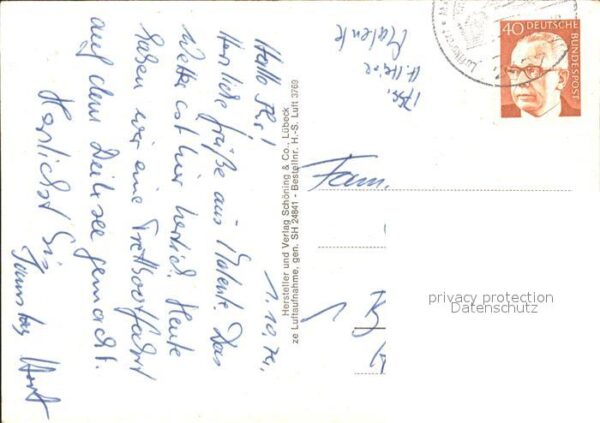 1.10.74.
Hallo Ihr!
Herzliche Grüße aus Malente. Das
Wetter ist hier herrlich. Heute
haben wir eine Trettbootfahrt
auf dem Dieksee gemacht.
Herlichst
Horst
Malente
Hersteller und Verlag Schöning & Co., Lübeck
ze Luftaufnahme, gen. SH 24841 - Bestellnr. H.-S. Luft 3769
40 DEUTSCHE
BUNDESPOST
Fam.
1
privacy protection
Datenschutz